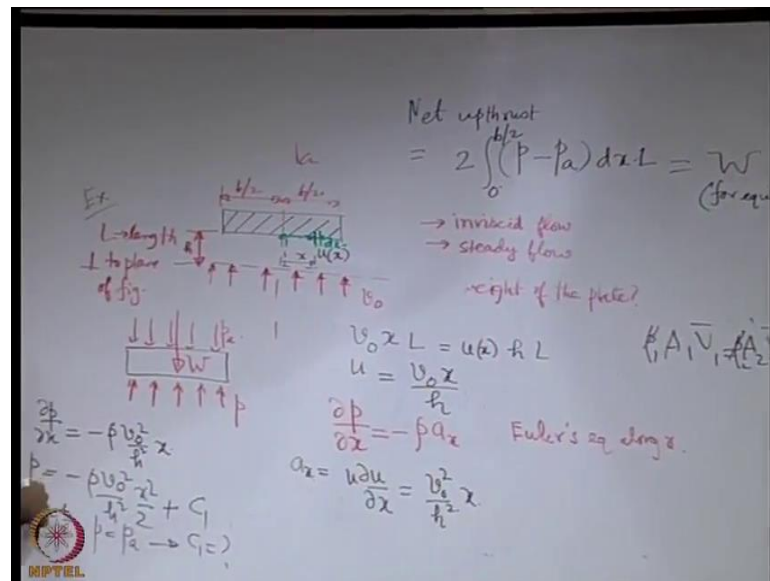 Net upthrust
= 2 ∫₀^{b/2} (p - pₐ) dx L = W
(for equ
Ex.
b/2 b/2
L → length
⊥ to plane
of fig.
h
dx
x u(x)
v₀
→ inviscid flow
→ steady flow
weight of the plate?
pₐ
W
p
v₀ x L = u(x) h L
u = v₀ x / h
ρ₁ A₁ V̄₁ = ρ₂ A₂ V̄
∂p/∂x = -ρ aₓ Euler's eq along x.
aₓ = u ∂u/∂x = v₀²/h² x
∂p/∂x = -ρ v₀²/h² x
p = -ρ v₀²/h² x²/2 + C₁
p = pₐ → C₁ = ?
NPTEL